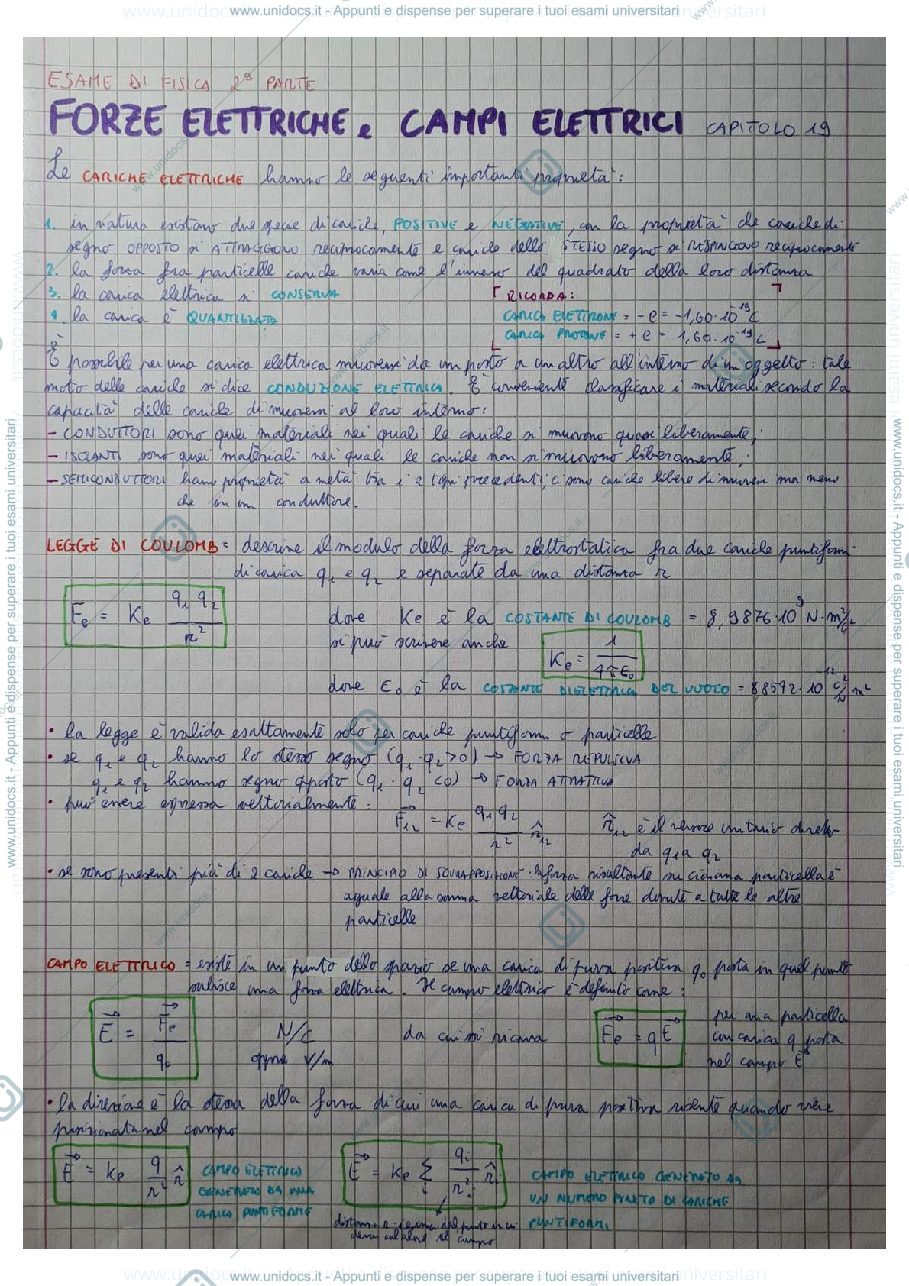 www.unidocs.it - Appunti e dispense per superare i tuoi esami universitari
ESAME DI FISICA 2ª PARTE
FORZE ELETTRICHE e CAMPI ELETTRICI CAPITOLO 19
Le CARICHE ELETTRICHE hanno le seguenti importanti proprietà:
1. in natura esistono due specie di cariche, POSITIVE e NEGATIVE, con la proprietà che cariche di
segno OPPOSTO si ATTRAGGONO reciprocamente e cariche dello STESSO segno si RESPINGONO reciprocamente
2. la forza fra particelle cariche varia come l'inverso del quadrato della loro distanza
3. la carica elettrica si CONSERVA
4. la carica è QUANTIZZATA
RICORDA:
CARICA ELETTRONE = -e = -1,60·10⁻¹⁹ C
CARICA PROTONE = +e = 1,60·10⁻¹⁹ C
È possibile per una carica elettrica muoversi da un posto a un altro all'interno di un oggetto: tale
moto delle cariche si dice CONDUZIONE ELETTRICA. È conveniente classificare i materiali secondo la
capacità delle cariche di muoversi al loro interno:
- CONDUTTORI sono quei materiali nei quali le cariche si muovono quasi liberamente;
- ISOLANTI sono quei materiali nei quali le cariche non si muovono liberamente;
- SEMICONDUTTORI hanno proprietà a metà tra i 2 tipi precedenti, ci sono cariche libere di muoversi ma meno
che in un conduttore.
LEGGE DI COULOMB = descrive il modulo della forza elettrostatica fra due cariche puntiformi
di carica q₁ e q₂ e separate da una distanza r
Fe = Ke q₁ q₂ / r²
dove Ke è la COSTANTE DI COULOMB = 8,9876·10⁹ N·m²/c²
si può scrivere anche
Ke = 1 / 4πε₀
dove ε₀ è la COSTANTE DIELETTRICA DEL VUOTO = 8,8542·10⁻¹² C²/N m²
• la legge è valida esattamente solo per cariche puntiformi o particelle
• se q₁ e q₂ hanno lo stesso segno (q₁·q₂>0) → FORZA REPULSIVA
q₁ e q₂ hanno segno opposto (q₁·q₂<0) → FORZA ATTRATTIVA
• può essere espressa vettorialmente:
F⃗₁₂ = Ke q₁ q₂ / r² r̂₁₂
r̂₁₂ è il versore unitario diretto
da q₁ a q₂
• se sono presenti più di 2 cariche → PRINCIPIO DI SOVRAPPOSIZIONE: la forza risultante su ciascuna particella è
uguale alla somma vettoriale delle forze dovute a tutte le altre
particelle
CAMPO ELETTRICO = esiste in un punto dello spazio se una carica di prova positiva q₀ posta in quel punto
subisce una forza elettrica. Il campo elettrico è definito come:
E⃗ = F⃗e / q₀
N/C
oppure V/m
da cui si ricava
F⃗e = qE⃗
per una particella
con carica q posta
nel campo E⃗
• la direzione è la stessa della forza di cui una carica di prova positiva risente quando viene
posizionata nel campo
E⃗ = Ke q / r² r̂
CAMPO ELETTRICO
GENERATO DA UNA
CARICA PUNTIFORME
E⃗ = Ke Σᵢ qᵢ / rᵢ² r̂
CAMPO ELETTRICO GENERATO DA
UN NUMERO FINITO DI CARICHE
PUNTIFORMI
www.unidocs.it - Appunti e dispense per superare i tuoi esami universitari